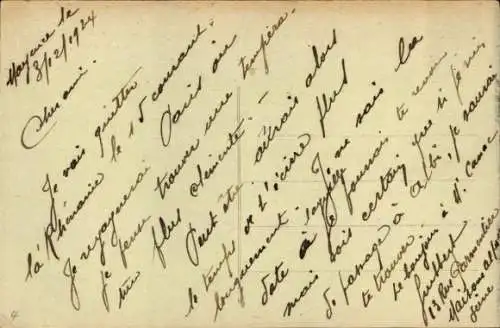 Mayence le
13/12/1924
Cher ami.
Je vais quitter
la Rhénanie le 15 courant.
Je voyagerai Paris où
je pense trouver une tempéra
ture plus clémente. -
Peut être aurais alors
le temps de t'écrire plus
longuement. Je ne sais la
date à laquelle je pourrai te revoir
mais sois certain que si je suis
de passage à Albi, je saurai
te trouver.
Le bonjour à Mr.
Jaubert
13 Rue Parmentier
Maisons Alfort
Seine